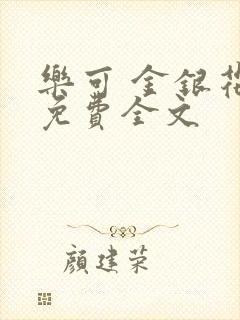 樂可 金銀花
免費全文
顏建荣